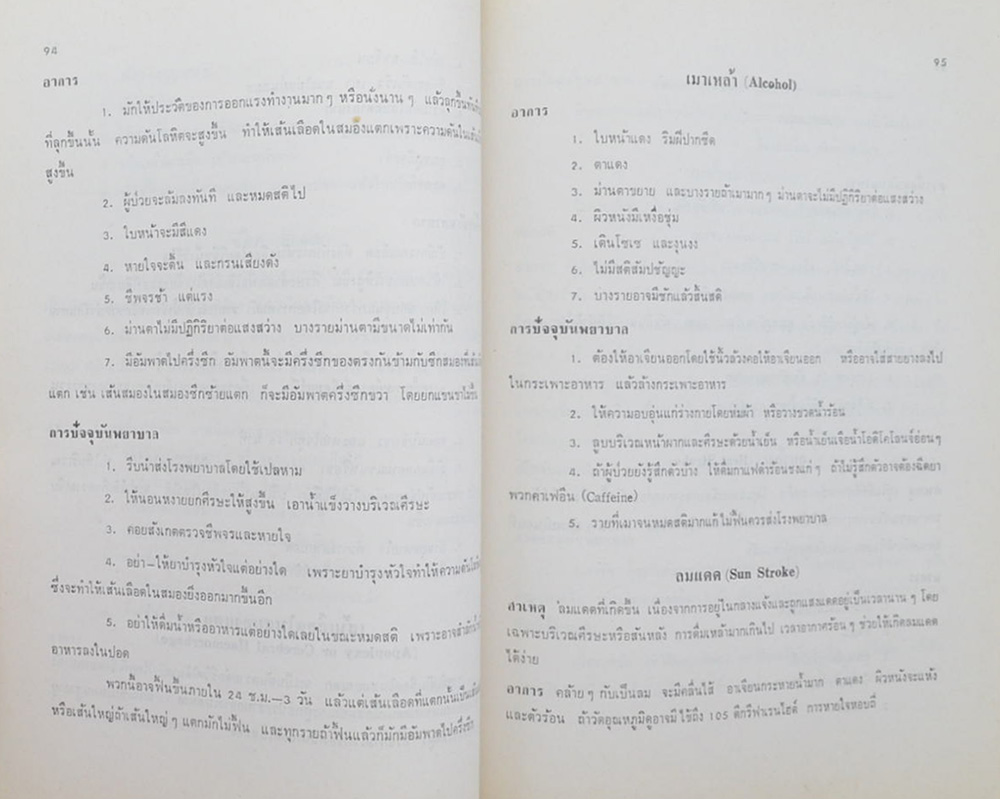 94
อาการ
1. มักให้ประวัติของการออกแรงทำงานมาก ๆ หรือนั่งนาน ๆ แล้วลุกขึ้นทันที
ที่ลุกขึ้นนั้น ความดันโลหิตจะสูงขึ้น ทำให้เส้นเลือดในสมองแตกเพราะความดันใน
สูงขึ้น
2. ผู้ป่วยจะล้มลงทันที และหมดสติไป
3. ใบหน้าจะมีสีแดง
4. หายใจจะตื้น และกรนเสียงดัง
5. ชีพจรช้า แต่แรง
6. ม่านตาไม่มีปฏิกิริยาต่อแสงสว่าง บางรายม่านตามีขนาดไม่เท่ากัน
7. มีอัมพาตไปครึ่งซีก อัมพาตนี้จะมีครึ่งซีกของตรงกันข้ามกับซีกสมองที่
แตก เช่น เส้นสมองในสมองซีกซ้ายแตก ก็จะมีอัมพาตครึ่งซีกขวา โดยยกแขนขาไม่ขึ้น
การปัจจุบันพยาบาล
1. รีบนำส่งโรงพยาบาลโดยใช้เปลหาม
2. ให้นอนหงายยกศีรษะให้สูงขึ้น เอาน้ำแข็งวางบริเวณศีรษะ
3. คอยสังเกตตรวจชีพจรและหายใจ
4. อย่า–ให้ยาบำรุงหัวใจแต่อย่างใด เพราะยาบำรุงหัวใจทำให้ความดัน
ซึ่งจะทำให้เส้นเลือดในสมองยิ่งออกมากขึ้นอีก
5. อย่าให้ดื่มน้ำหรืออาหารแต่อย่างใดเลยในขณะหมดสติ เพราะอาจสำลัก
อาหารลงในปอด
พวกนี้อาจฟื้นขึ้นภายใน 24 ช.ม.–3 วัน แล้วแต่เส้นเลือดที่แตกนั้นเป็น
หรือเส้นใหญ่ถ้าเส้นใหญ่ ๆ แตกมักไม่ฟื้น และทุกรายถ้าฟื้นแล้วก็มักมีอัมพาตไปครึ่งซีก
95
เมาเหล้า (Alcohol)
อาการ
1. ใบหน้าแดง ริมฝีปากซีด
2. ตาแดง
3. ม่านตาขยาย และบางรายถ้าเมามาก ๆ ม่านตาจะไม่มีปฏิกิริยาต่อแสงสว่าง
4. ผิวหนังมีเหงื่อชุ่ม
5. เดินโซเซ และงุนงง
6. ไม่มีสติสัมปชัญญะ
7. บางรายอาจมีชักแล้วสิ้นสติ
การปัจจุบันพยาบาล
1. ต้องให้อาเจียนออกโดยใช้นิ้วล้วงคอให้อาเจียนออก หรืออาจใส่สายยางลงไป
ในกระเพาะอาหาร แล้วล้างกระเพาะอาหาร
2. ให้ความอบอุ่นแก่ร่างกายโดยห่มผ้า หรือวางขวดน้ำร้อน
3. ลูบบริเวณหน้าผากและศีรษะด้วยน้ำเย็น หรือน้ำเย็นเจือน้ำโอดิโคโลนจ์อ่อน ๆ
4. ถ้าผู้ป่วยยังรู้สึกตัวบ้าง ให้ดื่มกาแฟดำร้อนชงแก่ ๆ ถ้าไม่รู้สึกตัวอาจต้องฉีดยา
พวกคาเฟอีน (Caffeine)
5. รายที่เมาจนหมดสติมากแก้ไม่ฟื้นควรส่งโรงพยาบาล
ลมแดด (Sun Stroke)
สาเหตุ ลมแดดที่เกิดขึ้น เนื่องจากการอยู่ในกลางแจ้งและถูกแสงแดดอยู่เป็นเวลานาน ๆ โดย
เฉพาะบริเวณศีรษะหรือสันหลัง การดื่มเหล้ามากเกินไป เวลาอากาศร้อน ๆ ช่วยให้เกิดลมแดด
ได้ง่าย
อาการ คล้าย ๆ กับเป็นลม จะมีคลื่นไส้ อาเจียนกระหายน้ำมาก ตาแดง ผิวหนังจะแห้ง
และตัวร้อน ถ้าวัดอุณหภูมิดูอาจมีไข้ถึง 105 ดีกรีฟาเรนไฮต์ การหายใจหอบถี่